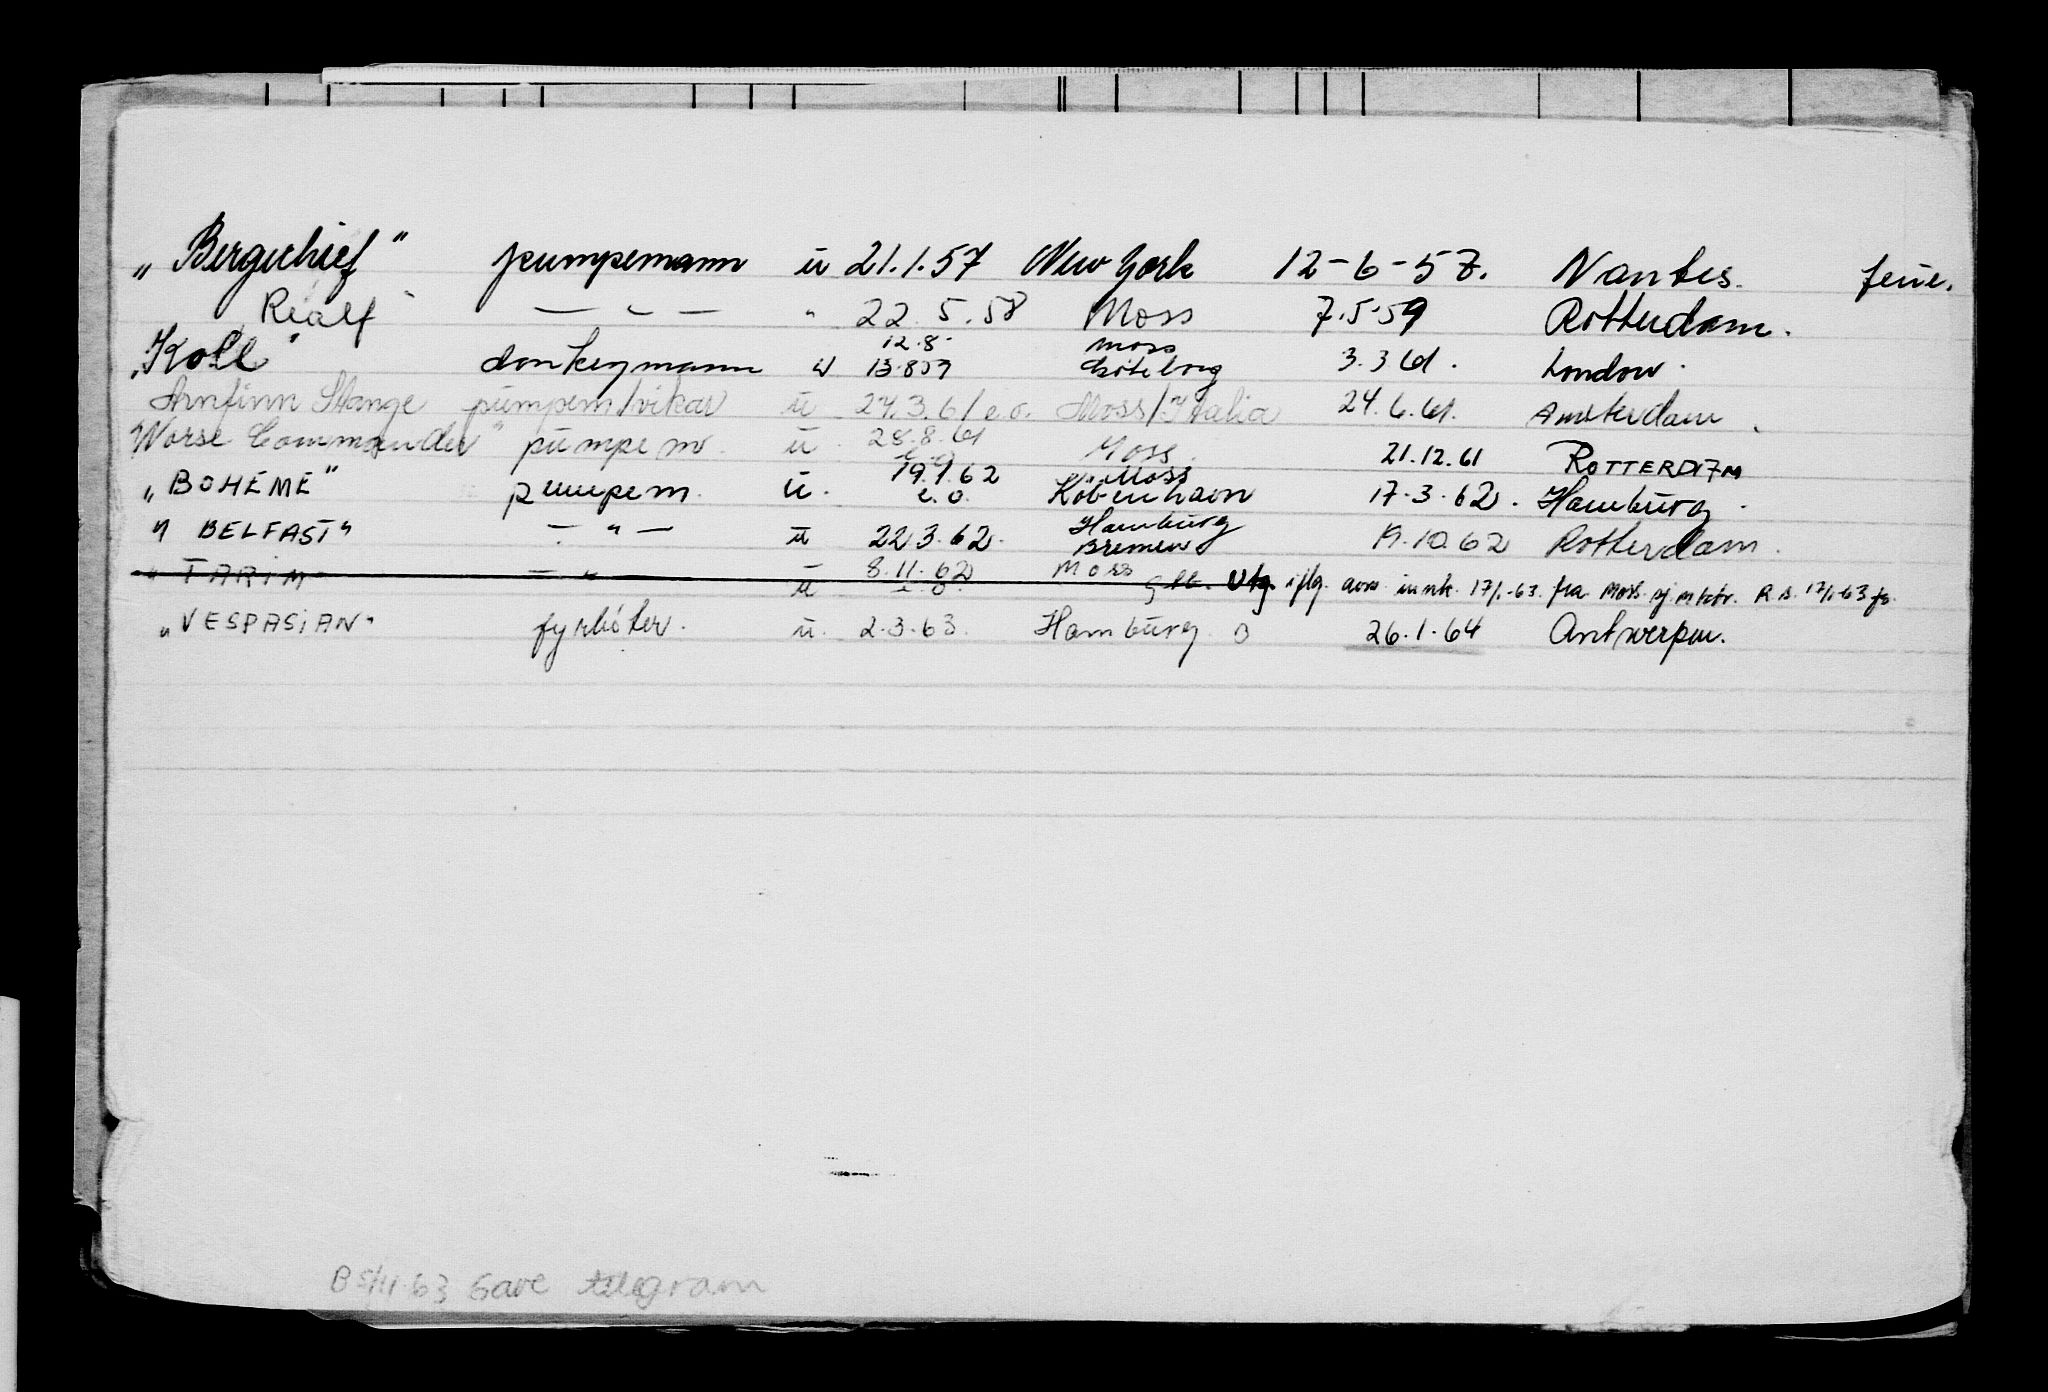 „Bergechief" pumpemann u 21.1.57 New York 12-6-57. Nantes. ferie.
Rialf" — " — " 22.5.58 Moss 7.5.59 Rotterdam.
12.8 Moss
„Koll" donkeymann u 13.8.59 Göteborg 3.3.61. London.
Arnfinn Stange pumpem/vikar u 27.3.61 e.o. Moss/Italia 24.6.61. Amsterdam.
"Worse Commander" pumpem. u. 28.8.61 e.o. Moss. 21.12.61 ROTTERDAM
19.1.62 Moss
„BOHÊME" pumpem. u. e.o. Köbenhavn 17.3.62. Hamburg.
Hamburg
" BELFAST" — " — u 22.3.62. Bremen 19.10.62 Rotterdam.
" TARIM — " 8.11.62 Moss
u e.o. Utg. iflg. avm. innk. 17/1-63. fra Moss sj.m.ktr. R.S. 17/1-63
„VESPASIAN" fyrböter. u. 2.3.63. Hamburg. B 26.1.64 Antwerpen.
B 5/11-63 Gave telegram